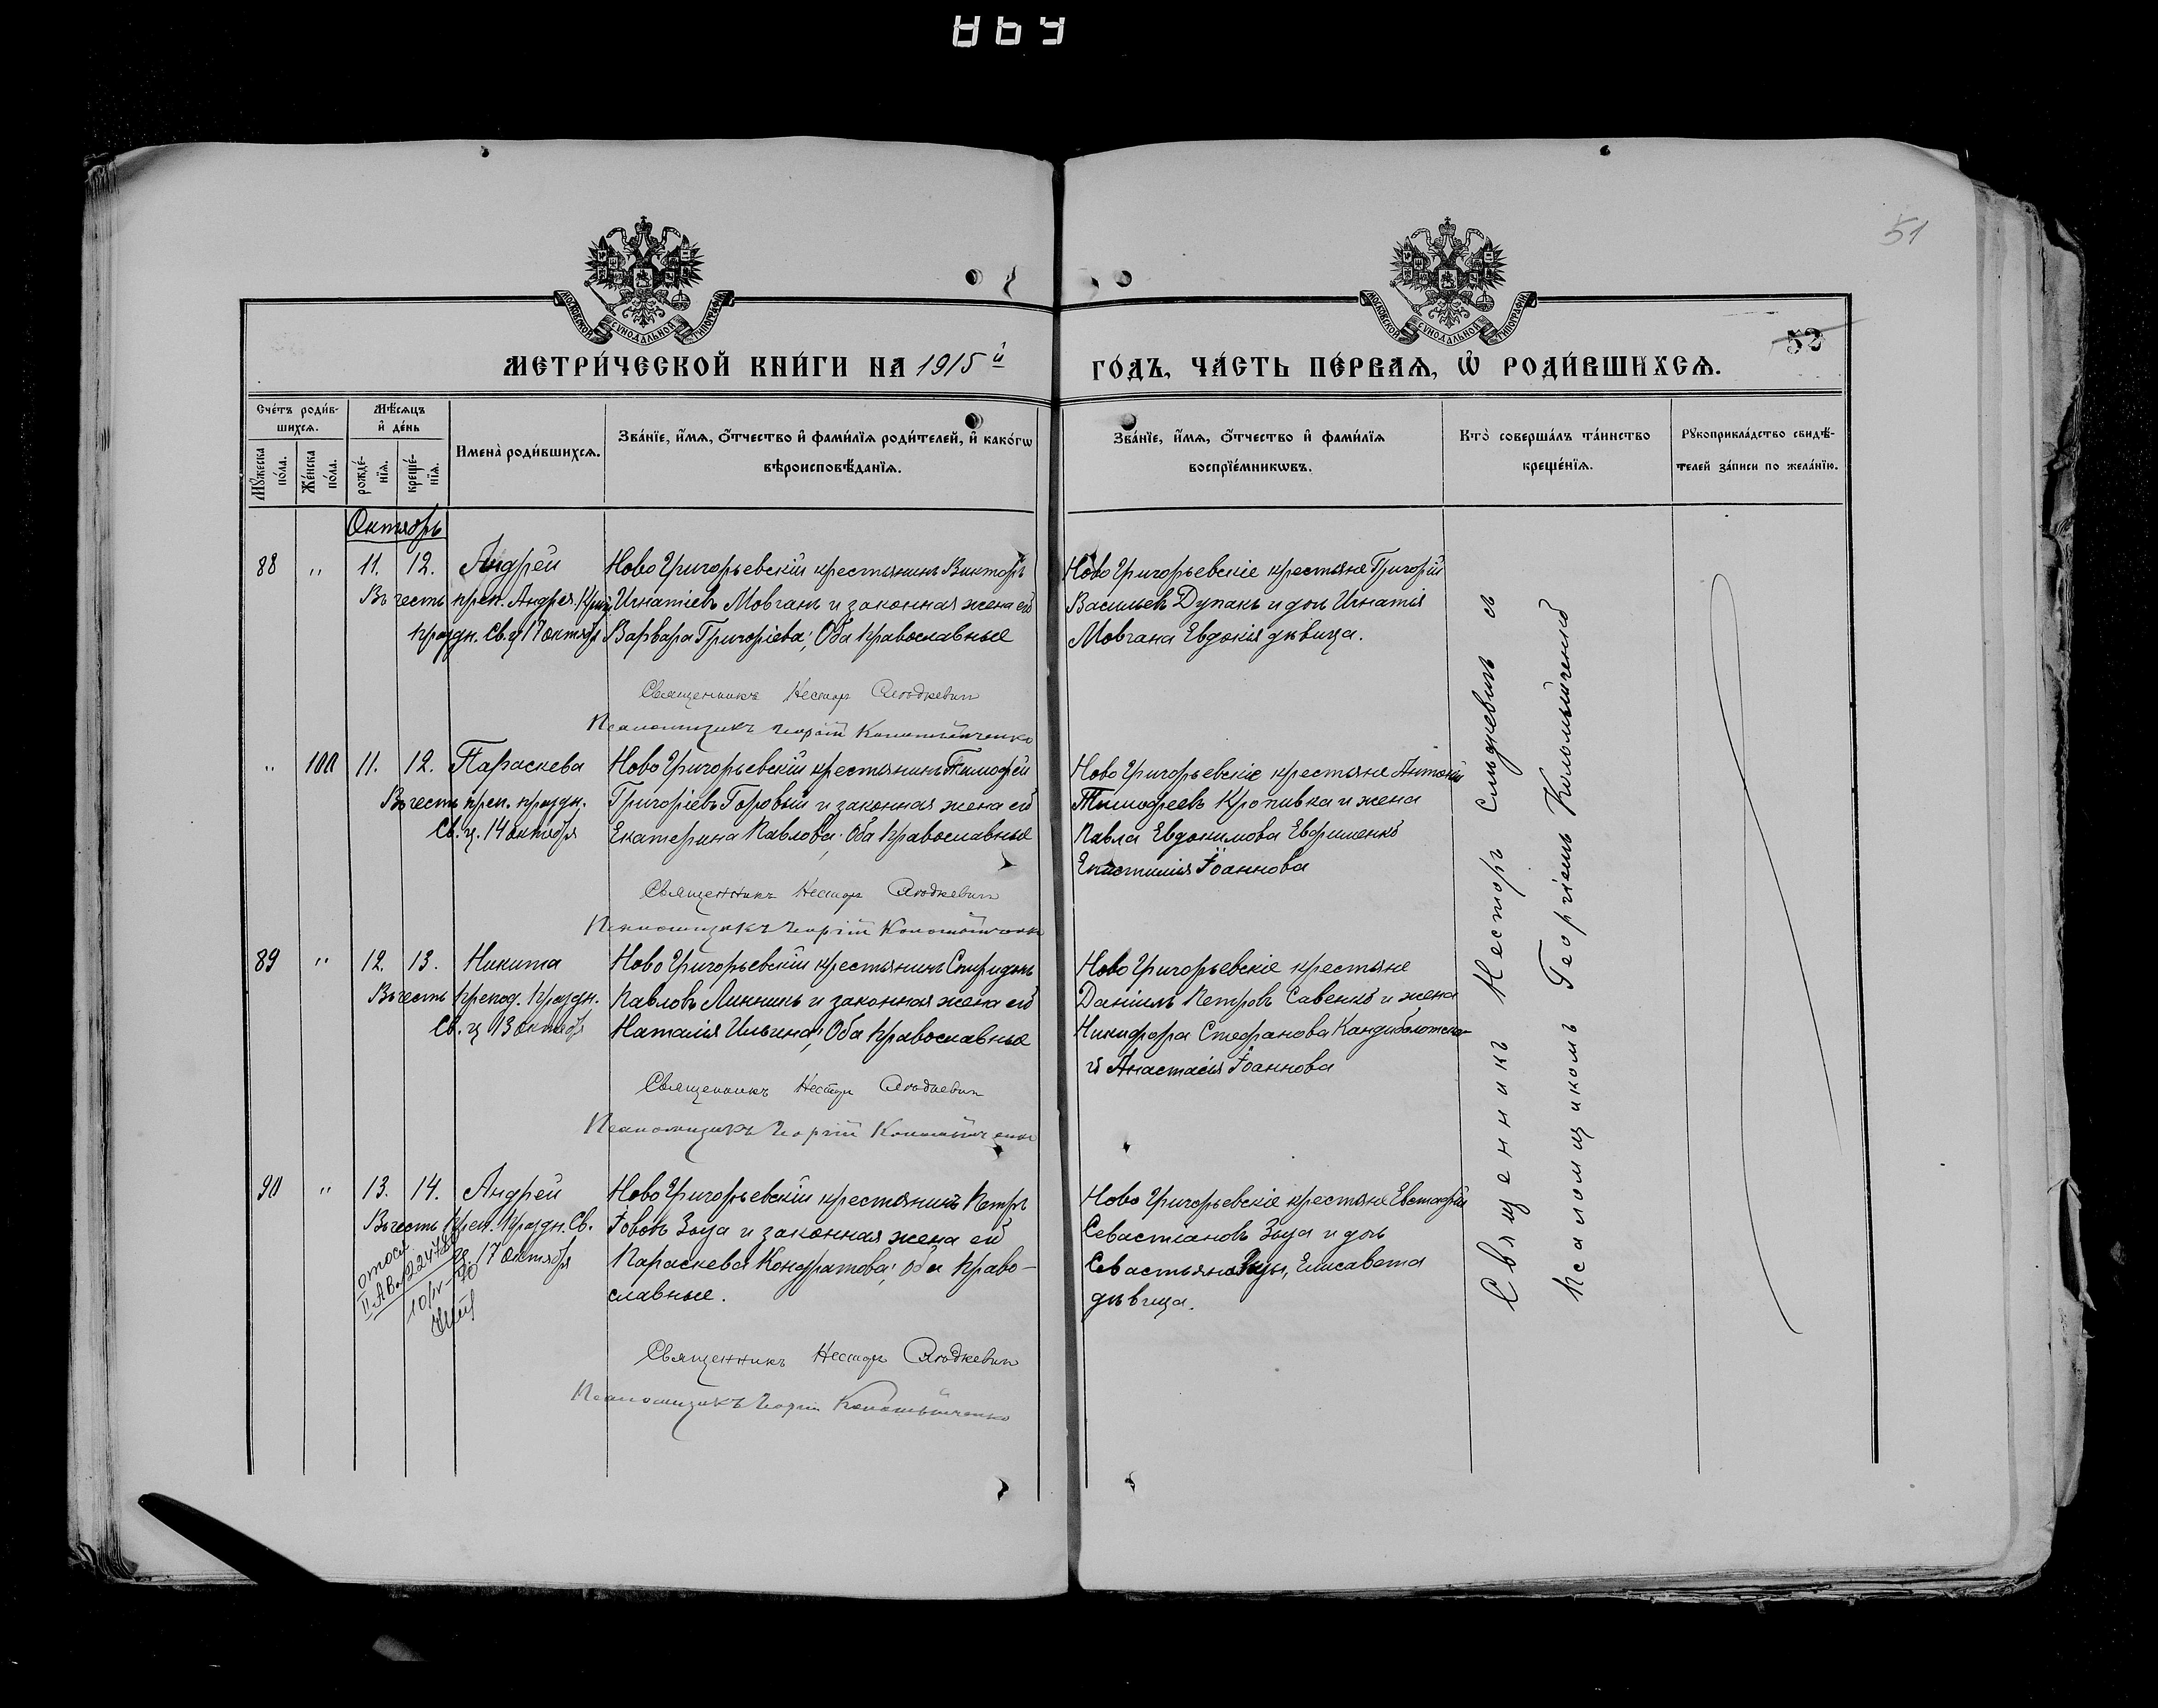 869
51
52
МОСКОВСКОЙ СУНОДАЛЬНОЙ ТИПОГРАФІИ
МОСКОВСКОЙ СУНОДАЛЬНОЙ ТИПОГРАФІИ
МЕТРИ́ЧЕСКОЙ КНИ́ГИ НА 1915 й
ГО́ДЪ, ЧА́СТЬ ПЕ́РВАѦ, Ѡ҆ РОДИ́ВШИХСѦ.
Сче́тъ роди́в-
шихсѧ.
Мꙋ́жеска по́ла.
Же́нска по́ла.
Мѣ́сѧцъ и҆ де́нь
рожде́-нїѧ.
креще́-нїѧ.
И҆мена̀ роди́вшихсѧ.
Зва́нїе, и҆́мѧ, ѻ҆́тчество и҆ фами́лїѧ роди́телей, и҆ како́гѡ
вѣроисповѣ́данїѧ.
Зва́нїе, и҆́мѧ, ѻ҆́тчество и҆ фами́лїѧ
воспрїе́мникѡвъ.
Кто̀ соверша́лъ та́инство
креще́нїѧ.
Рꙋкоприкла́дство свидѣ́-
телей за́писи по жела́нїю.
Октябрь
88 " 11. 12. Андрей
Въ честь преп. Андрея Крит.
праздн. Св. ц 17 октября
Ново Григорьевскій крестьянинъ Викторъ
Игнатіевъ Мовчанъ и законная жена его
Варвара Григоріева; Оба Православные
Священникъ Несторъ
Псаломщикъ Георгій Коломійченко
Ново Григорьевскіе крестьяне Григорій
Васильевъ Дупакъ и дочь Игнатія
Мовчана Евдокія дѣвица.
" 100 11. 12. Параскева
Въ честь преп. праздн.
Св. ц. 14 октября
Ново Григорьевскій крестьянинъ Тимофей
Григоріевъ Горовый и законная жена его
Екатерина Павлова; Оба Православные
Священникъ Несторъ
Псаломщикъ Георгій Коломійченко
Ново Григорьевскіе крестьяне Антоній
Тимофеевъ Кропивка и жена
Павла Евдокимова Ефименко
Іоаннова
89 " 12. 13. Никита
Въ честь препод. Праздн.
Св. ц 13 октября
Ново Григорьевскій крестьянинъ Спиридонъ
Павловъ Линникъ и законная жена его
Наталія Ильина; Оба Православные
Священникъ Несторъ
Псаломщикъ Георгій Коломійченко
Ново Григорьевскіе крестьяне
Даніилъ Петровъ Савенко и жена
Никифора Стефанова
Анастасія Іоаннова
90 " 13. 14. Андрей
Въ честь Преп. Праздн. Св.
ц. 17 октября
Ново Григорьевскій крестьянинъ Петръ
Іововъ Зуца и законная жена его
Параскева Кондратова; Оба Право-
славные.
Священникъ Несторъ
Псаломщикъ Георгій Коломійченко
Ново Григорьевскіе крестьяне Евстафій
Севастіановъ Зуца и дочь
Севастьяна Зуцы, Елисавета
дѣвица.
Священникъ Несторъ с
Псаломщикомъ Георгіемъ Коломійченко